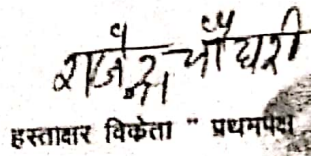 राजेन्द्र चौधरी
हस्ताक्षर विक्रेता " प्रथमपक्ष